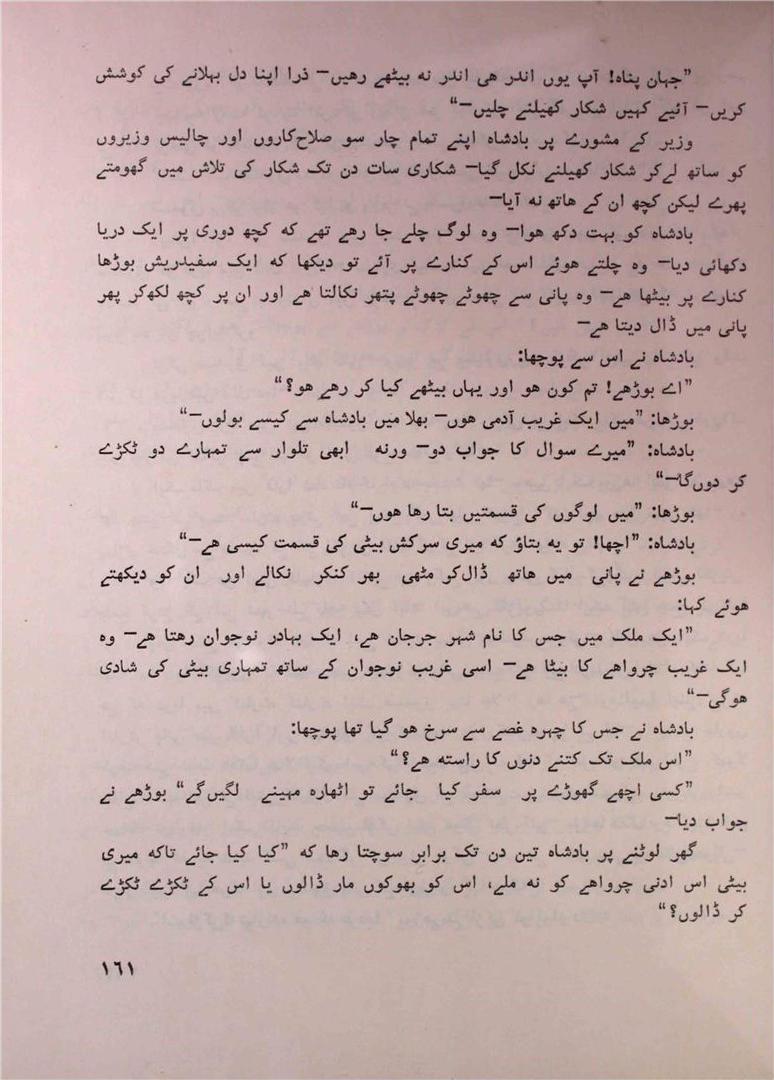 ”جہان پناہ! آپ یوں اندر ھی اندر نہ بیٹھے رھیں— ذرا اپنا دل بہلانے کی کوشش
کریں— آئیے کہیں شکار کھیلنے چلیں—“
وزیر کے مشورے پر بادشاہ اپنے تمام چار سو صلاح‌کاروں اور چالیس وزیروں
کو ساتھ لے‌کر شکار کھیلنے نکل گیا— شکاری سات دن تک شکار کی تلاش میں گھومتے
پھرے لیکن کچھ ان کے ھاتھ نہ آیا—
بادشاہ کو بہت دکھ ھوا— وہ لوگ چلے جا رھے تھے کہ کچھ دوری پر ایک دریا
دکھائی دیا— وہ چلتے ھوئے اس کے کنارے پر آئے تو دیکھا کہ ایک سفیدریش بوڑھا
کنارے پر بیٹھا ھے— وہ پانی سے چھوٹے چھوٹے پتھر نکالتا ھے اور ان پر کچھ لکھ‌کر پھر
پانی میں ڈال دیتا ھے—
بادشاہ نے اس سے پوچھا:
”اے بوڑھے! تم کون ھو اور یہاں بیٹھے کیا کر رھے ھو؟“
بوڑھا: ”میں ایک غریب آدمی ھوں— بھلا میں بادشاہ سے کیسے بولوں—“
بادشاہ: ”میرے سوال کا جواب دو— ورنہ ابھی تلوار سے تمہارے دو ٹکڑے
کر دوں‌گا—“
بوڑھا: ”میں لوگوں کی قسمتیں بتا رھا ھوں—“
بادشاہ: ”اچھا! تو یہ بتاؤ کہ میری سرکش بیٹی کی قسمت کیسی ھے—“
بوڑھے نے پانی میں ھاتھ ڈال‌کر مٹھی بھر کنکر نکالے اور ان کو دیکھتے
ھوئے کہا:
”ایک ملک میں جس کا نام شہر جرجان ھے، ایک بہادر نوجوان رھتا ھے— وہ
ایک غریب چرواھے کا بیٹا ھے— اسی غریب نوجوان کے ساتھ تمہاری بیٹی کی شادی
ھوگی—“
بادشاہ نے جس کا چہرہ غصے سے سرخ ھو گیا تھا پوچھا:
”اس ملک تک کتنے دنوں کا راستہ ھے؟“
”کسی اچھے گھوڑے پر سفر کیا جائے تو اٹھارہ مہینے لگیں‌گے“ بوڑھے نے
جواب دیا—
گھر لوٹنے پر بادشاہ تین دن تک برابر سوچتا رھا کہ ”کیا کیا جائے تاکہ میری
بیٹی اس ادنی چرواھے کو نہ ملے، اس کو بھوکوں مار ڈالوں یا اس کے ٹکڑے ٹکڑے
کر ڈالوں؟“
۱۶۱